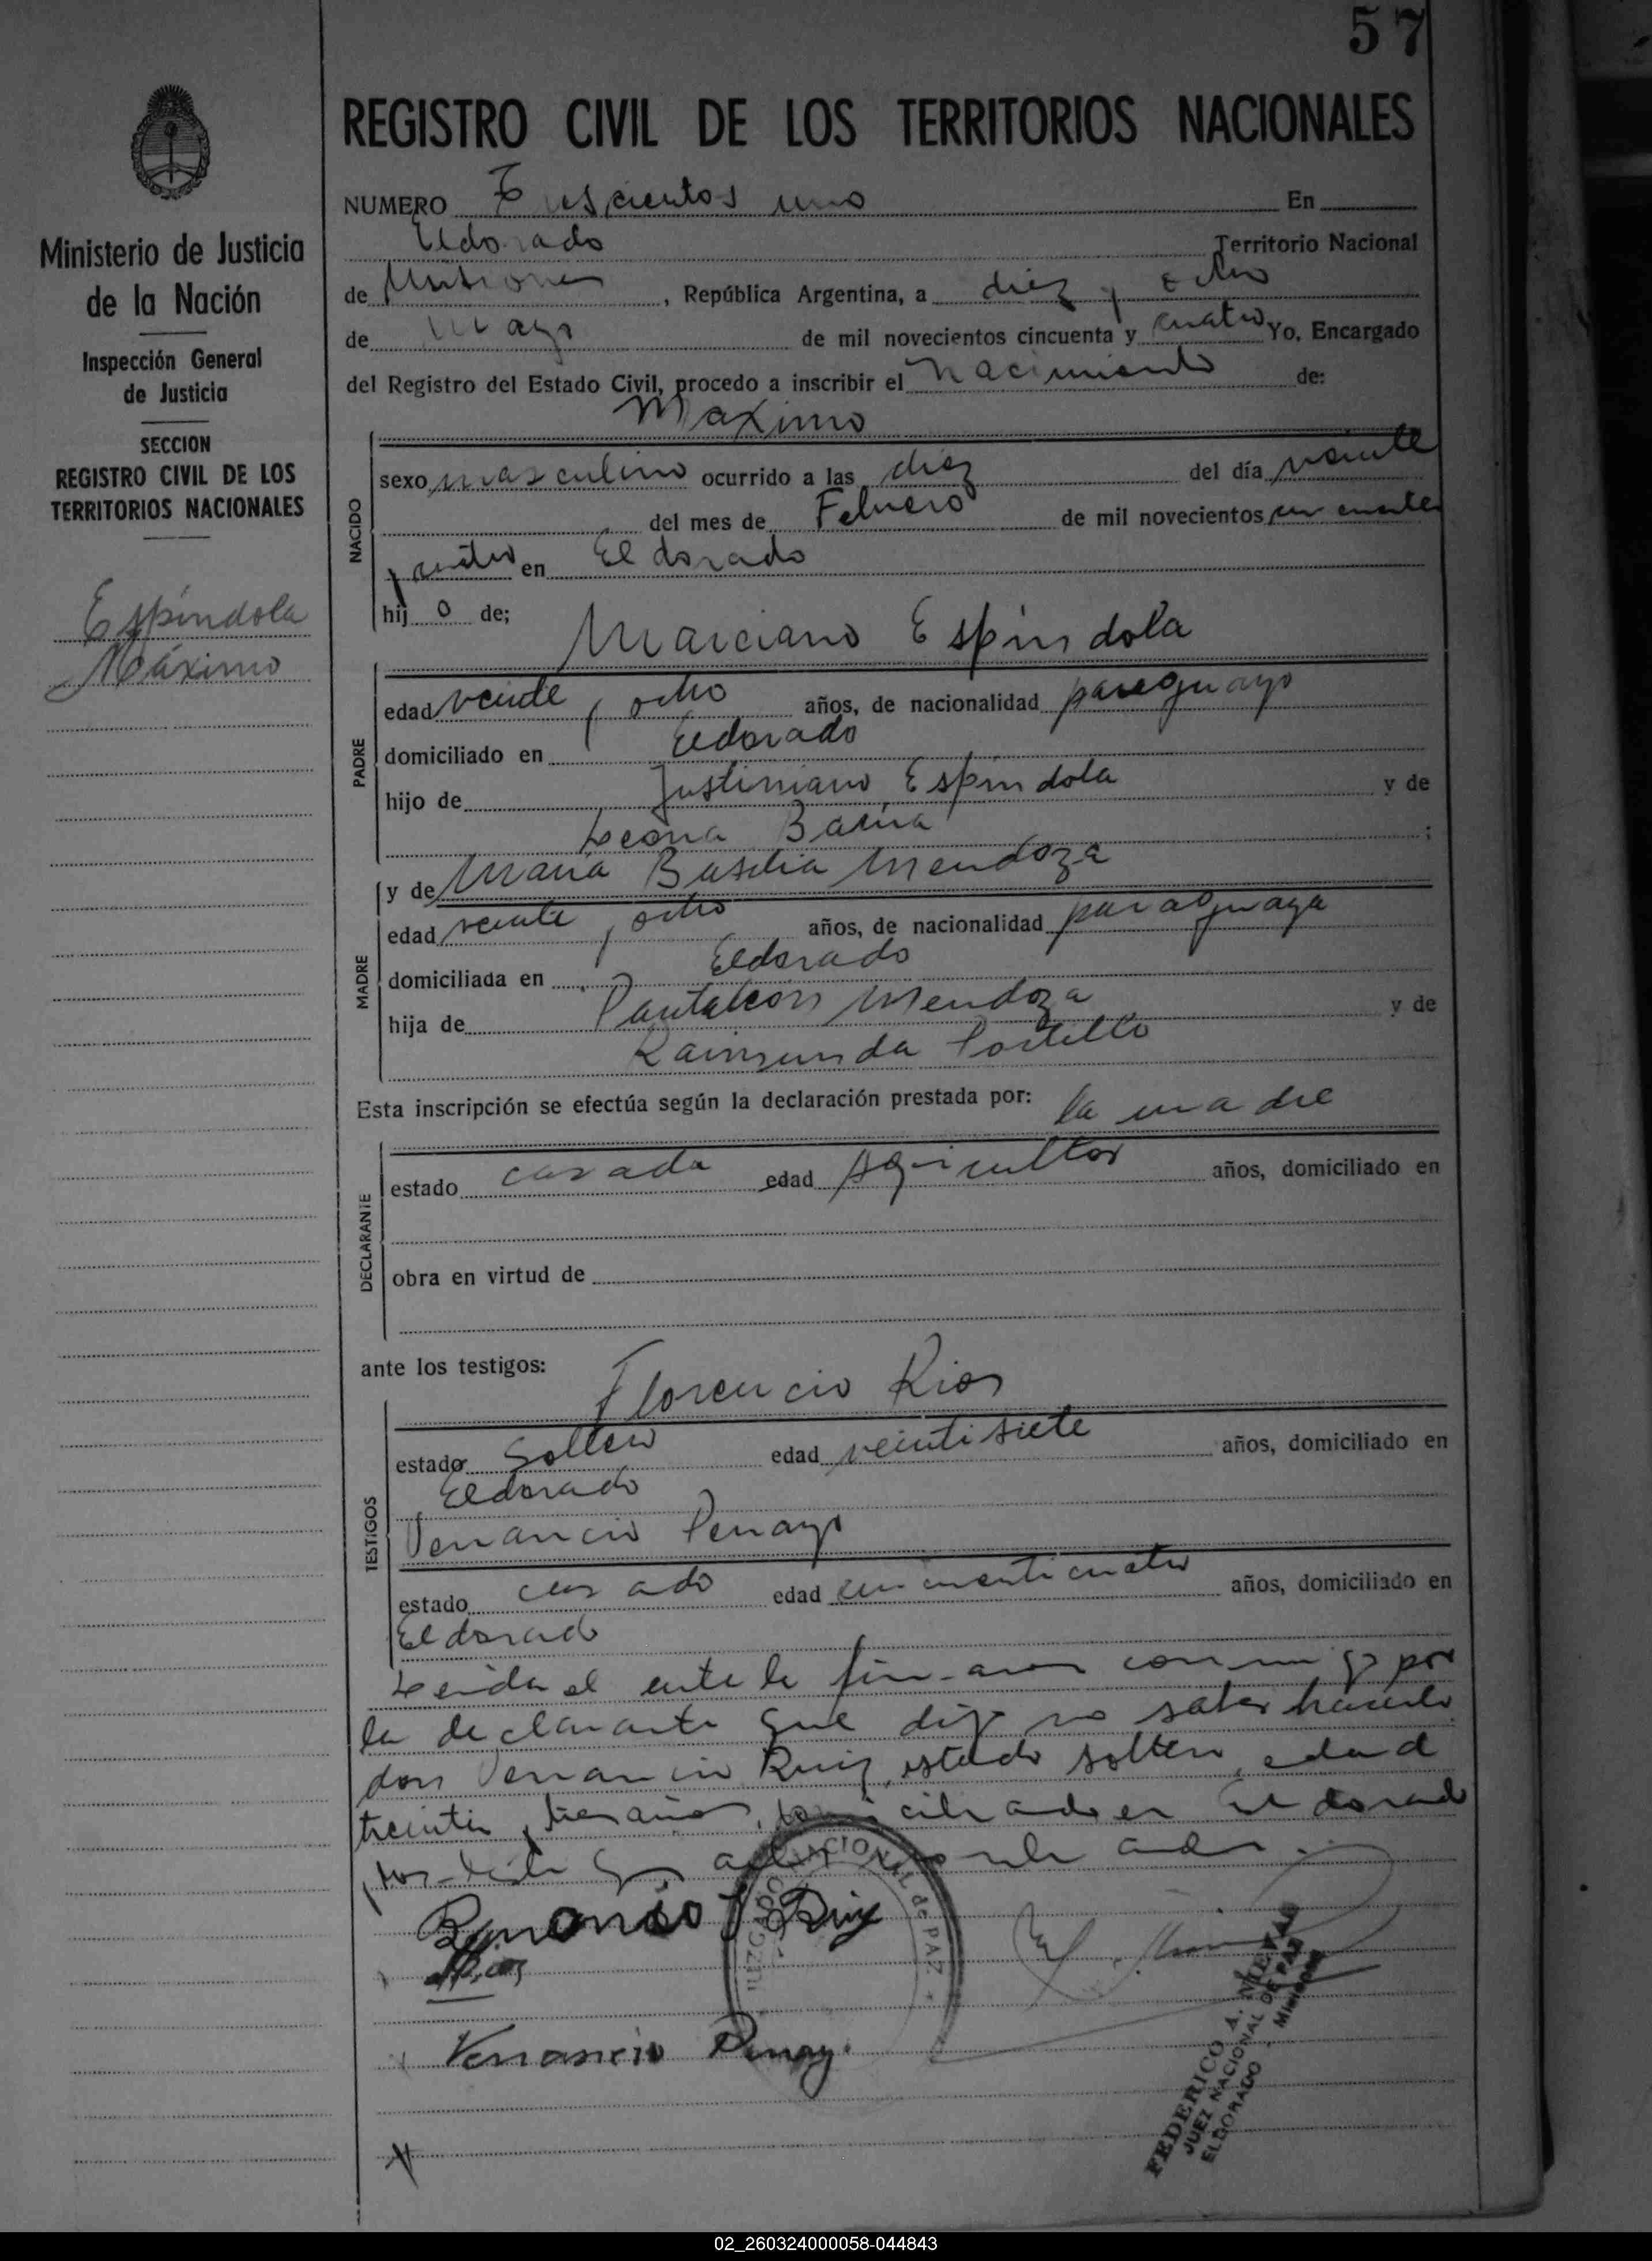 57
REGISTRO CIVIL DE LOS TERRITORIOS NACIONALES
Ministerio de Justicia
de la Nación
Inspección General
de Justicia
SECCION
REGISTRO CIVIL DE LOS
TERRITORIOS NACIONALES
Espíndola
Máximo
NUMERO Trescientos uno En
Eldorado Territorio Nacional
de Misiones, República Argentina, a diez y ocho
de mayo de mil novecientos cincuenta y cuatro Yo, Encargado
del Registro del Estado Civil, procedo a inscribir el nacimiento de:
Maximo
NACIDO
sexo masculino ocurrido a las diez del día veinte
del mes de Febrero de mil novecientos cincuenta
y cuatro en Eldorado
hij o de;
Marciano Espíndola
PADRE
edad veinte y ocho años, de nacionalidad paraguayo
domiciliado en Eldorado
hijo de Justiniano Espíndola y de
Leona ;
y de Maria Basilia Mendoza
MADRE
edad veinte y ocho años, de nacionalidad paraguaya
domiciliada en Eldorado
hija de Pantaleón Mendoza y de
Raimunda Portillo
Esta inscripción se efectúa según la declaración prestada por: la madre
DECLARANTE
estado casada edad Agricultor años, domiciliado en
obra en virtud de
ante los testigos:
Florencio Rios
TESTIGOS
estado Soltero edad veintisiete años, domiciliado en
Eldorado
Venancio Penayo
estado casado edad cincuenticuatro años, domiciliado en
Eldorado
Leida el acta la firmaron conmigo por
la declarante que dijo no saber hacerlo
don Venancio Ruiz, estado soltero, edad
treinti y tres años, domiciliado en Eldorado
Ruiz
Rios
Venancio Penayo
NACIONAL de PAZ
FEDERICO A. NIEVAS
JUEZ NACIONAL DE PAZ
ELDORADO - Misiones
02_260324000058-044843